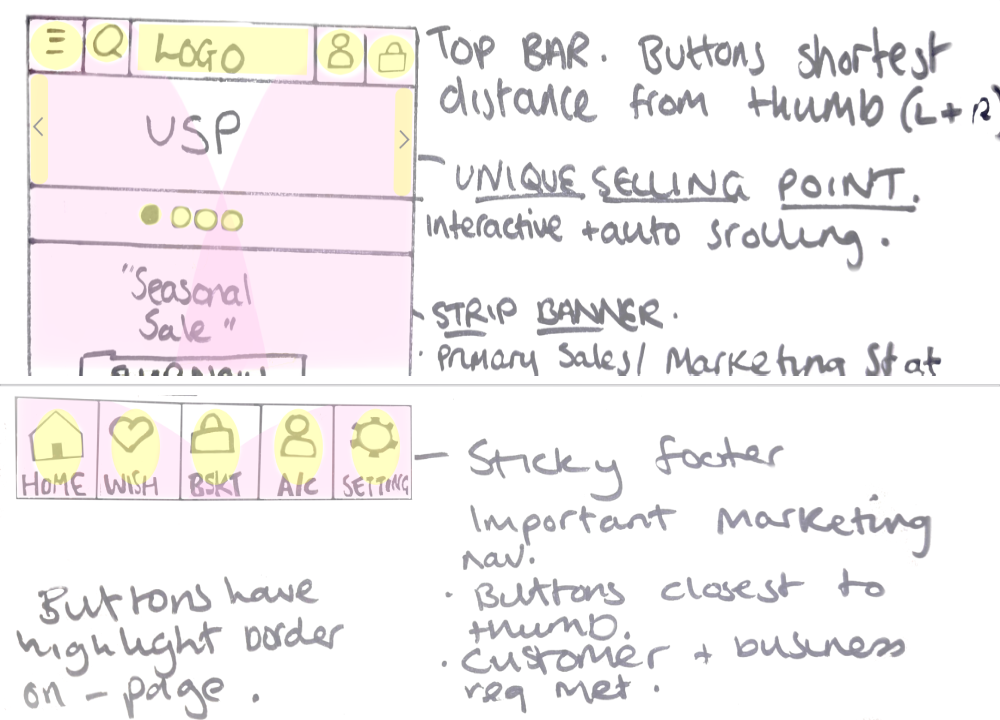 LOGO
USP
"Seasonal
Sale"
TOP BAR. Buttons shortest
distance from thumb (L+R)
UNIQUE SELLING POINT.
interactive + auto srolling.
STRIP BANNER.
· Primary Sales/ Marketing Strat
HOME WISH BSKT A/C SETTING
Sticky footer
Important Marketing
nav.
· Buttons closest to
thumb.
· Customer + business
req met.
Buttons have
highlight border
on-page.